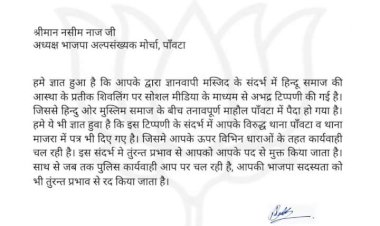 श्रीमान नसीम नाज जी
अध्यक्ष भाजपा अल्पसंख्यक मोर्चा, पाँवटा
हमे ज्ञात हुआ है कि आपके द्वारा ज्ञानवापी मस्जिद के संदर्भ में हिन्दू समाज की
आस्था के प्रतीक शिवलिंग पर सोशल मीडिया के माध्यम से अभद्र टिप्पणी की गई है।
जिससे हिन्दु ओर मुस्लिम समाज के बीच तनावपूर्ण माहौल पाँवटा में पैदा हो गया है।
हमे ये भी ज्ञात हुवा है कि इस टिप्पणी के संदर्भ में आपके विरुद्ध थाना पाँवटा व थाना
माजरा में पत्र भी दिए गए है। जिसमे आपके ऊपर विभिन धाराओं के तहत कार्यवाही
चल रही है। इस संदर्भ मे तुंरन्त प्रभाव से आपको आपके पद से मुक्त किया जाता है।
साथ से जब तक पुलिस कार्यवाही आप पर चल रही है, आपकी भाजपा सदस्यता को
भी तुंरन्त प्रभाव से रद किया जाता है।